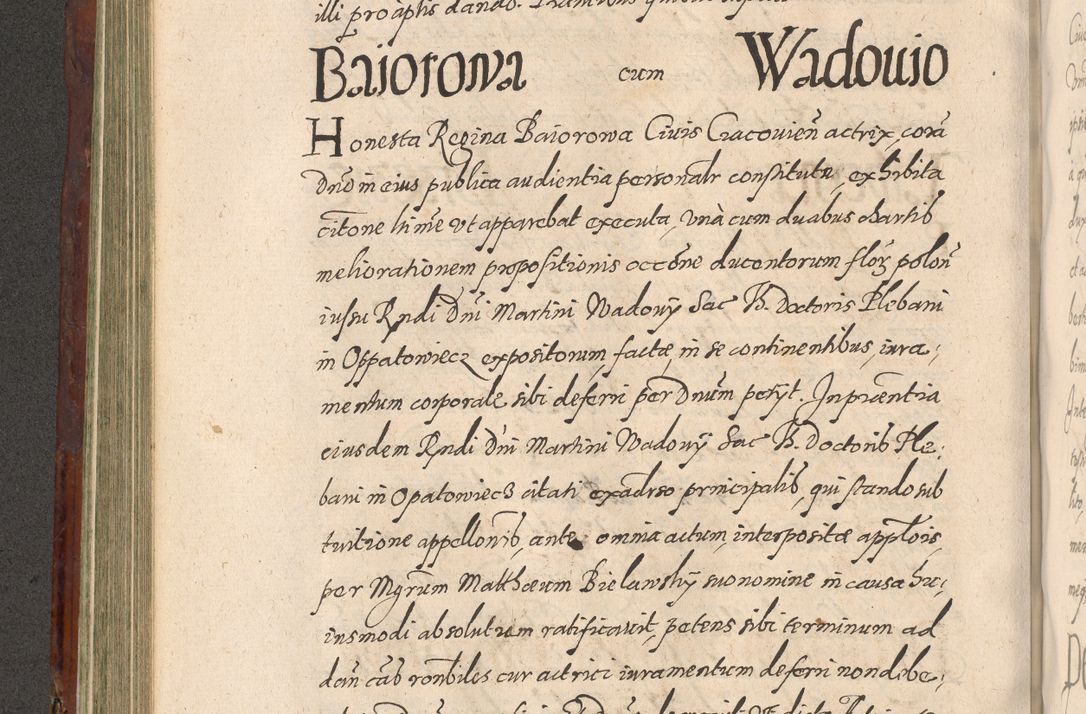 illi pro aplis dando.
Baiorowa cum Wadouio
Honesta Regina Baiorowa Ciuis Cracouien̄ actrix, corā
Dn̄o in eius publica audientia personalr constituta, exhibita
cit̄one hīc in̄e vt apparebat executa, vnà cum duabus chartis
meliorationem propositionis occōne ducentorum flor̄ polon̄
iussu Rn̄di Dn̄i Martini Wadouÿ Sac Th. Doctoris Plebani
in Oppatowiecz expositorum, factæ, in se continentibus, iura,
mentum corporale sibi deferri per Dnūm petÿt. In pn̄tia
eiusdem Rn̄di Dn̄i Martini Wadouÿ Sac Th. Doctoris Ple,
bani in Opatowiecz citati ex aduerso principalis, qui stando sub
tuitione appellōnis, ante omnia actum, interpositæ appłois,
per Mgrūm Matthæum Bielawskÿ suo nomine in causa hu,
iusmodi absolutum ratificauit, petens sibi terminum ad
dan̄ cās ron̄biles cur actrici iuramentum deferri non debe,